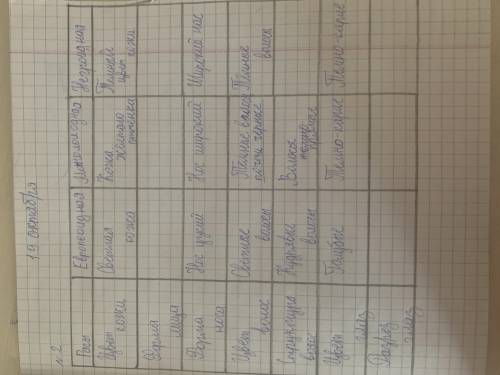 19 октября
№2
Расы Европеоидная Монголоидная Негроидная
Цвет кожи Светлая кожа Кожа желтого оттенка Темный цвет кожи
Форма лица
Форма носа Нос узкий Нос широкий Широкий нос
Цвет волос Светлые волосы Темные волосы почти черные Темные волосы
Структура волос Кудрявые волосы Волосы прямые
Цвет глаз Голубые Темно-карие Темно-карие
Разрез глаз